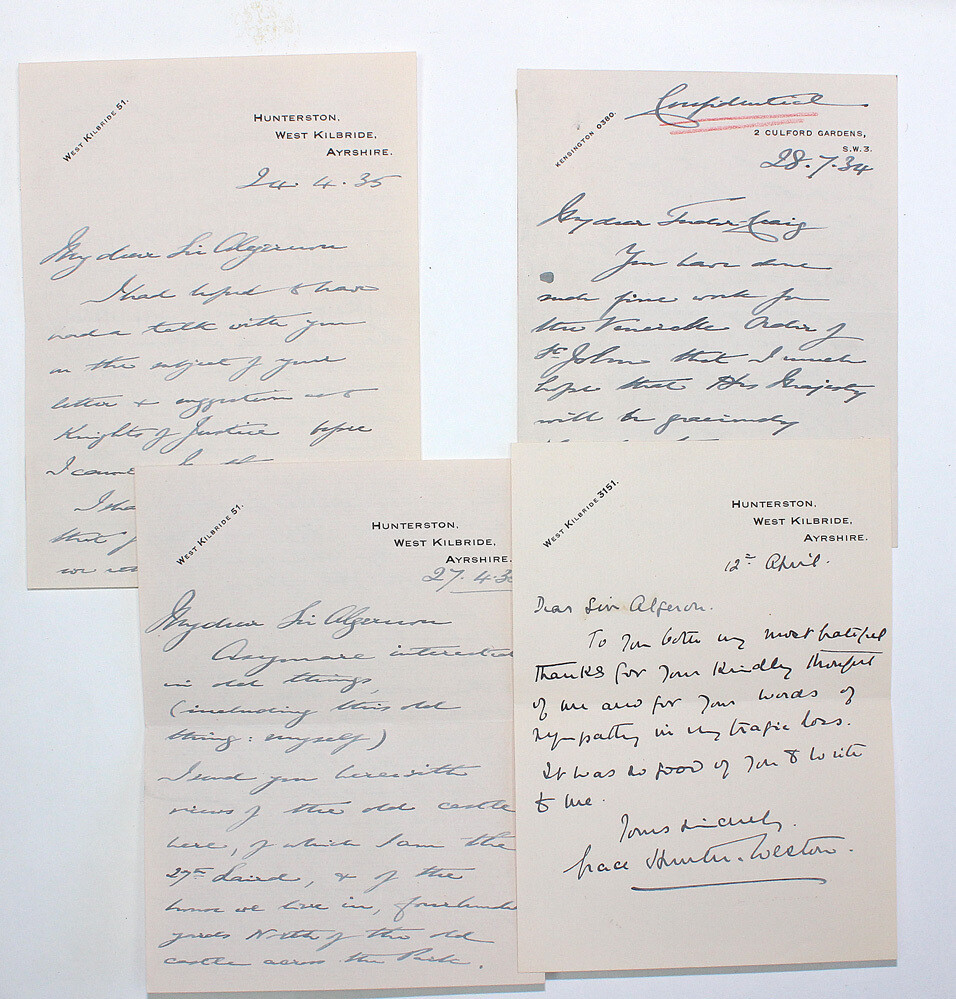 WEST KILBRIDE 51.
HUNTERSTON,
WEST KILBRIDE,
AYRSHIRE.
24 4.35
My dear Sir Algernon
I had hoped to have
had a talk with you
on the subject of your
letter & suggestion
Knights of Justice before
I
that
Confidential
KENSINGTON 0380.
2 CULFORD GARDENS,
S.W.3.
28.7.34
My dear Tudor-Craig
You have done
such fine work for
the Venerable Order of
St John that I much
hope that His Majesty
will be graciously
WEST KILBRIDE 51.
HUNTERSTON,
WEST KILBRIDE,
AYRSHIRE.
27.4.3
My dear Sir Algernon
As you are interested
in old things,
(including this old
thing: myself)
I send you herewith
views of the old castle
here, of which I am the
27th Laird, & of the
house we live in, four hund
yards North of the old
castle across the Park.
WEST KILBRIDE 3151.
HUNTERSTON,
WEST KILBRIDE,
AYRSHIRE.
12th April.
Dear Sir Algeron.
To you both my most grateful
thanks for your kindly thought
of me and for your words of
sympathy in my tragic loss.
It was so good of you to write
to me.
Yours sincerely.
Grace Hunter-Weston.